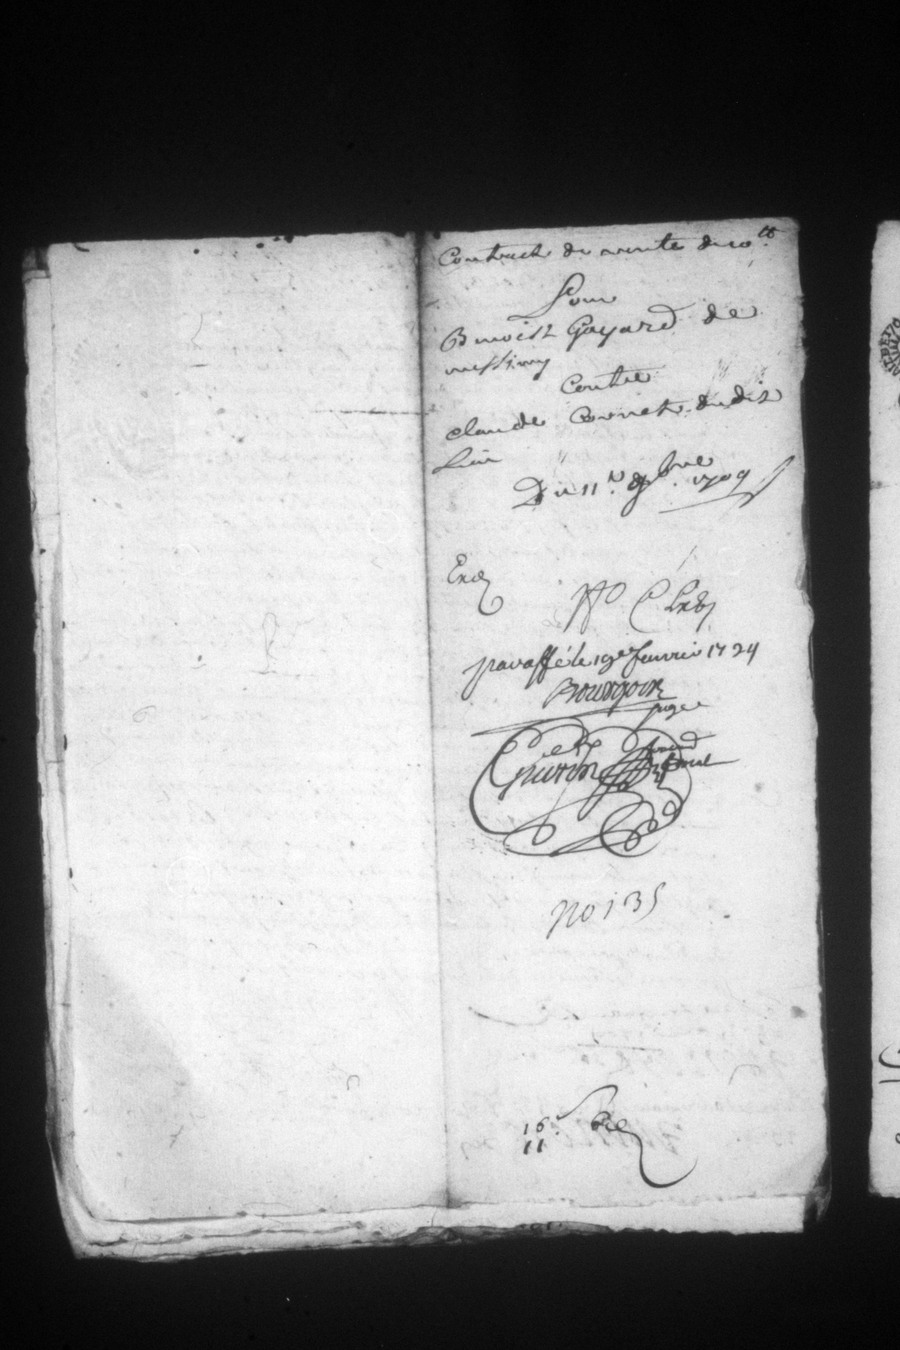 Contract de vente de 10ᵗᵗ
Pour
Benoist Gayard de
messimy
Contre
claude Cornet du dit
Lieu
Du 11.e 9bre 1709
paraffé le 19e feuvrié 1724
Bourgoin
juge
Guerin
no 135
16
11